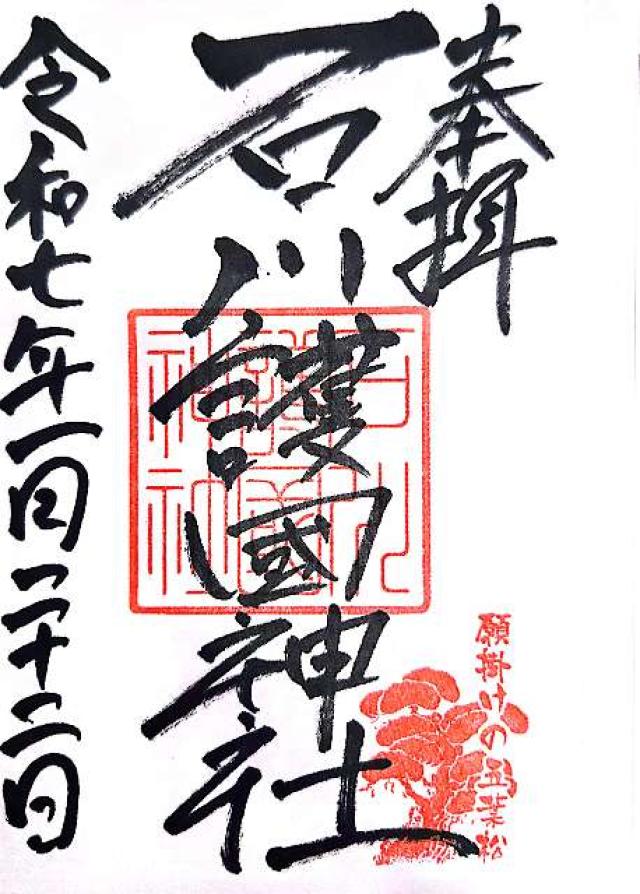 奉拝
石川護國神社
令和七年一月二十二日
石川
護國
神社
願掛けの五葉松